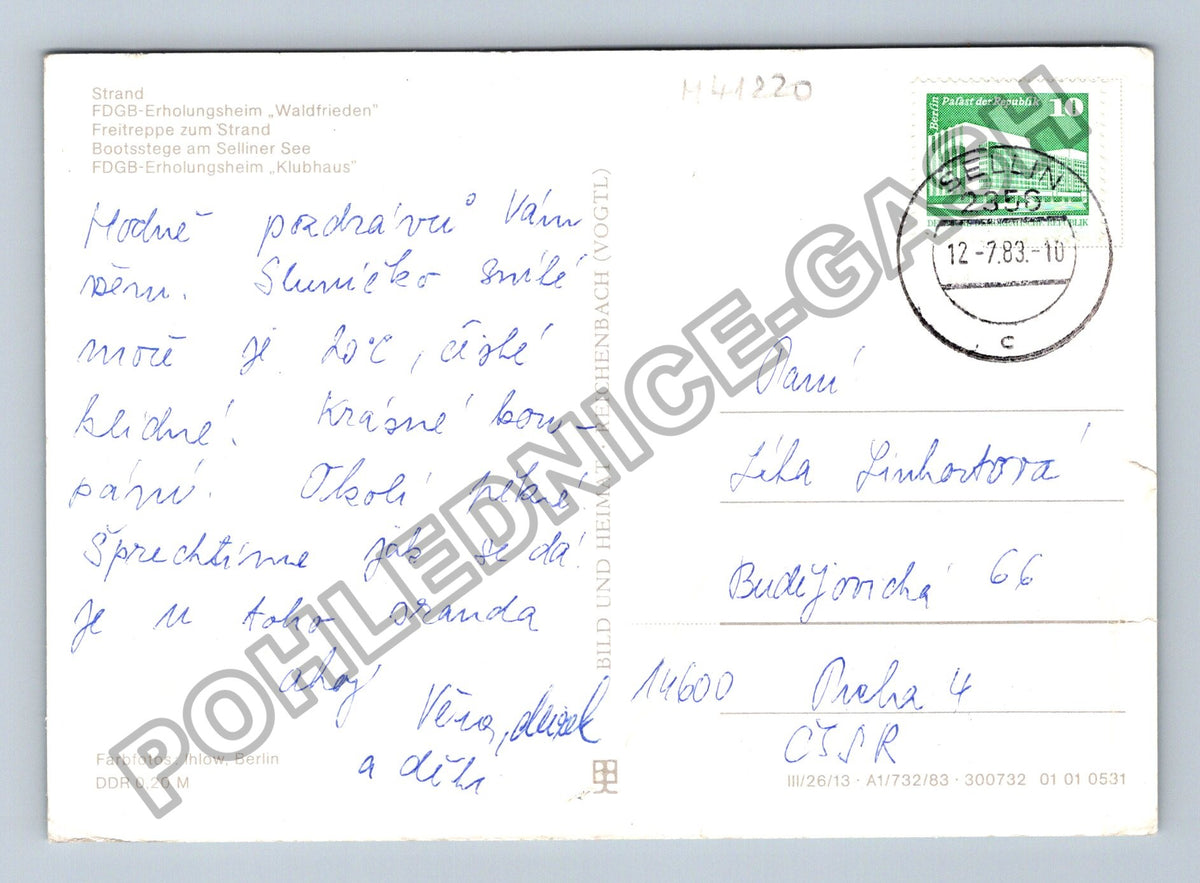 Strand
FDGB-Erholungsheim „Waldfrieden"
Freitreppe zum Strand
Bootsstege am Selliner See
FDGB-Erholungsheim „Klubhaus"
M41220
Berlin Palast der Republik 10
DEUTSCHE DEMOKRATISCHE REPUBLIK
SELLIN
2356
12.-7.83.-10
c
Hodně pozdravů Vám
všem. Sluníčko svítí
moře je 20°C, čisté
klidné! Krásné kou-
pání. Okolí pěkné
Šprechtíme jak se dá!
Je u toho sranda
ahoj
Věra,
a děti
BILD UND HEIMAT · REICHENBACH (VOGTL)
Paní
Linhartová
Budějovická 66
14600 Praha 4
ČSSR
Farbfotos: Ihlow, Berlin
DDR 0,20 M
III/26/13 · A1/732/83 · 300732 01 01 0531
POHLEDNICE-GASH